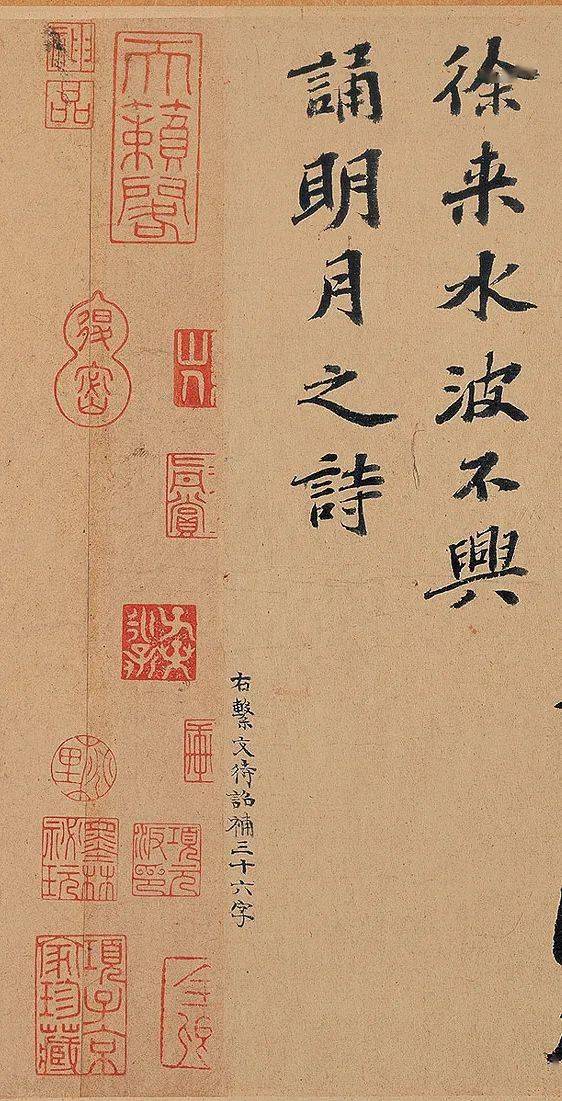 徐来水波不興
誦明月之詩
右繫文待詔補三十六字
天籟閣
項元汴印
神品
退密
墨林祕玩
項子京家珍藏